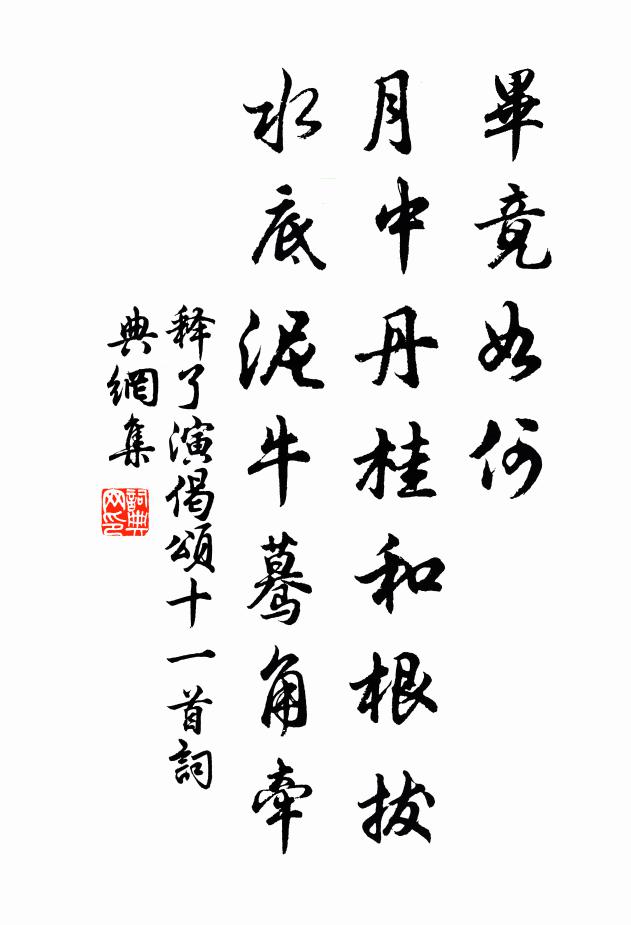 畢竟如何
月中丹桂和根拔
水底泥牛驀角牽
释了演偈頌十一首詞
典網集
詞典
网印